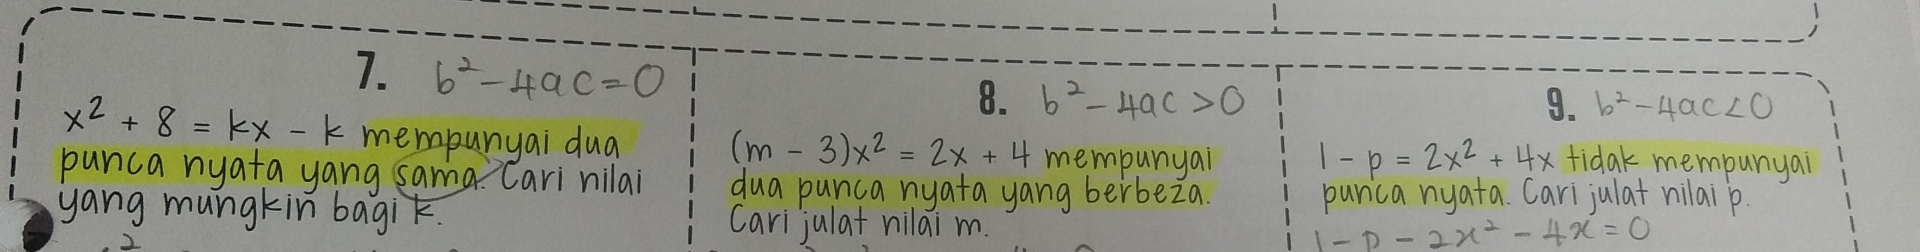 7. b² - 4ac = 0
x² + 8 = kx - k mempunyai dua
punca nyata yang sama. Cari nilai
yang mungkin bagi k.
8. b² - 4ac > 0
(m - 3)x² = 2x + 4 mempunyai
dua punca nyata yang berbeza.
Cari julat nilai m.
9. b² - 4ac < 0
1 - p = 2x² + 4x tidak mempunyai
punca nyata. Cari julat nilai p.
1 - p - 2x² - 4x = 0